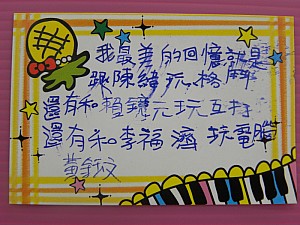 我最美的回憶就是
跟陳緯玩格鬥
還有和賴鏡元玩互打
還有和李福濟玩電腦
黃鈺文